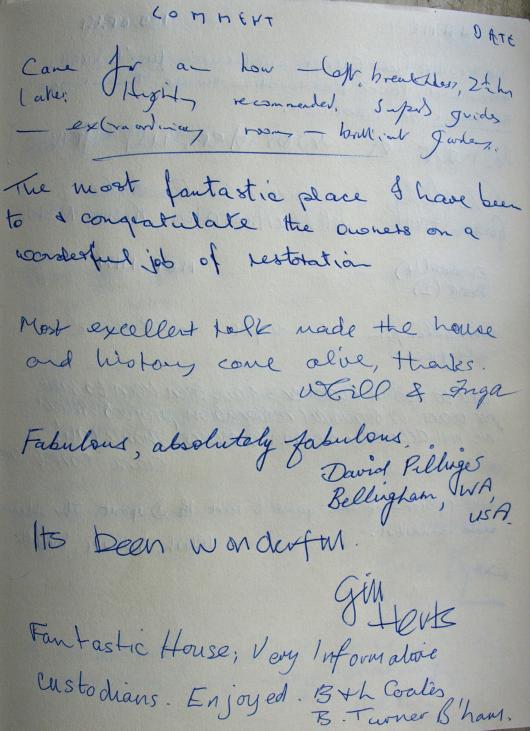 COMMENT
DATE
Came for an hour — left, breathless, 2½ hrs
later. Highly recommended. Superb guides
— extraordinary rooms — brilliant gardens.
The most fantastic place I have been
to & congratulate the owners on a
wonderful job of restoration
Most excellent talk made the house
and history come alive, thanks.
& Inga
Fabulous, absolutely fabulous.
David
Bellingham, WA,
USA.
Its been wonderful.
Gill
Herts
Fantastic House; Very Informative
custodians. Enjoyed. B & h Coales
B. Turner B'ham.